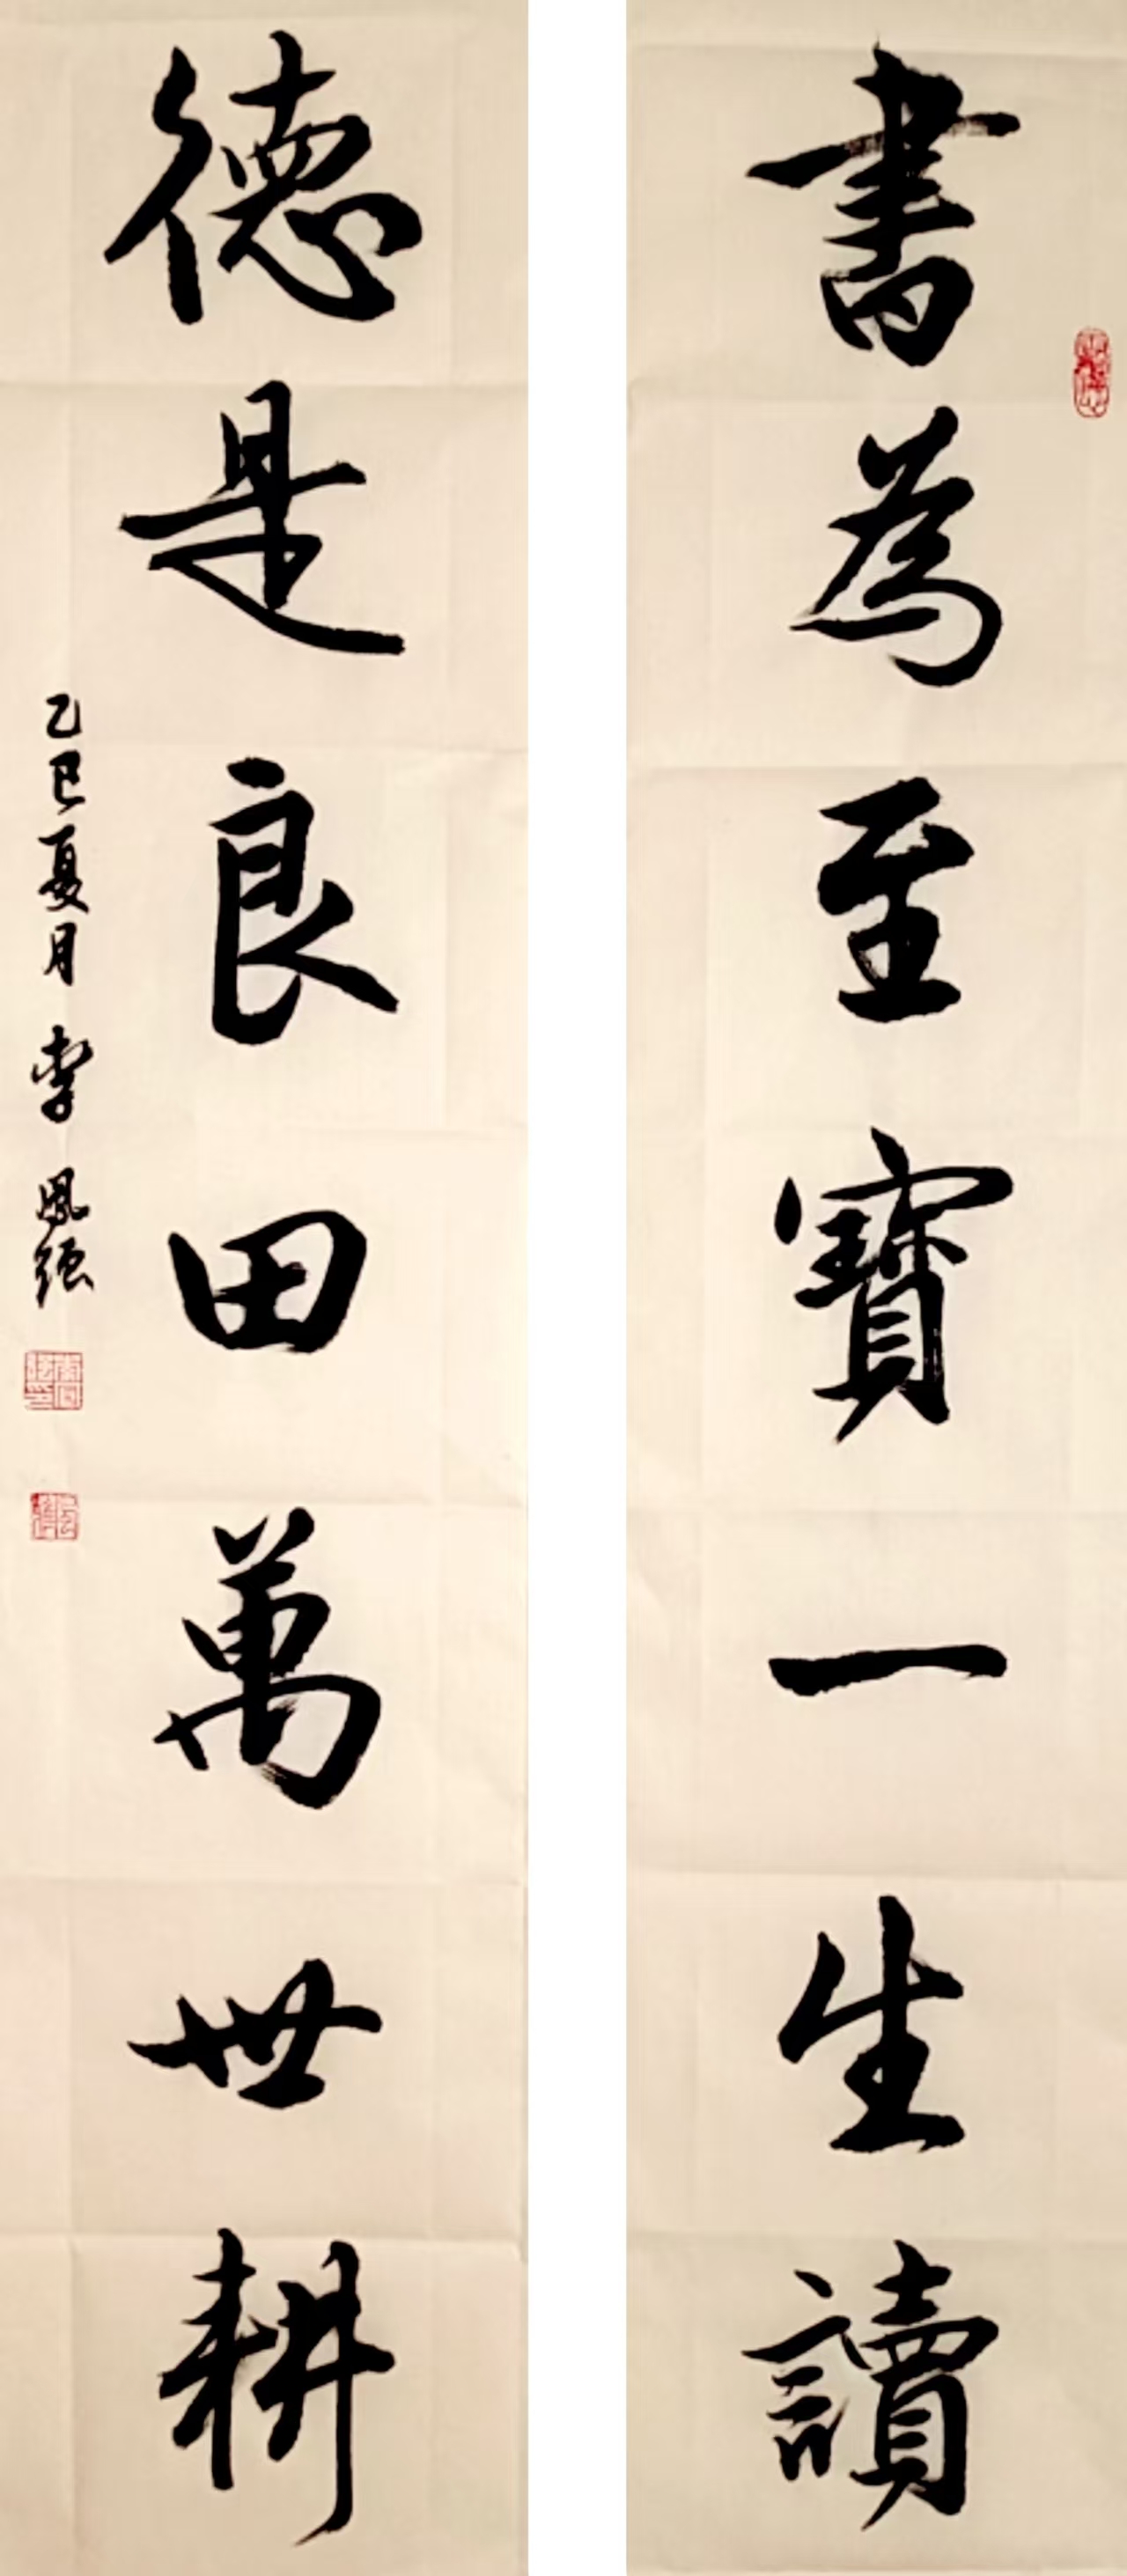 書為至寶一生讀
德是良田萬世耕
乙巳夏月 李鳳強